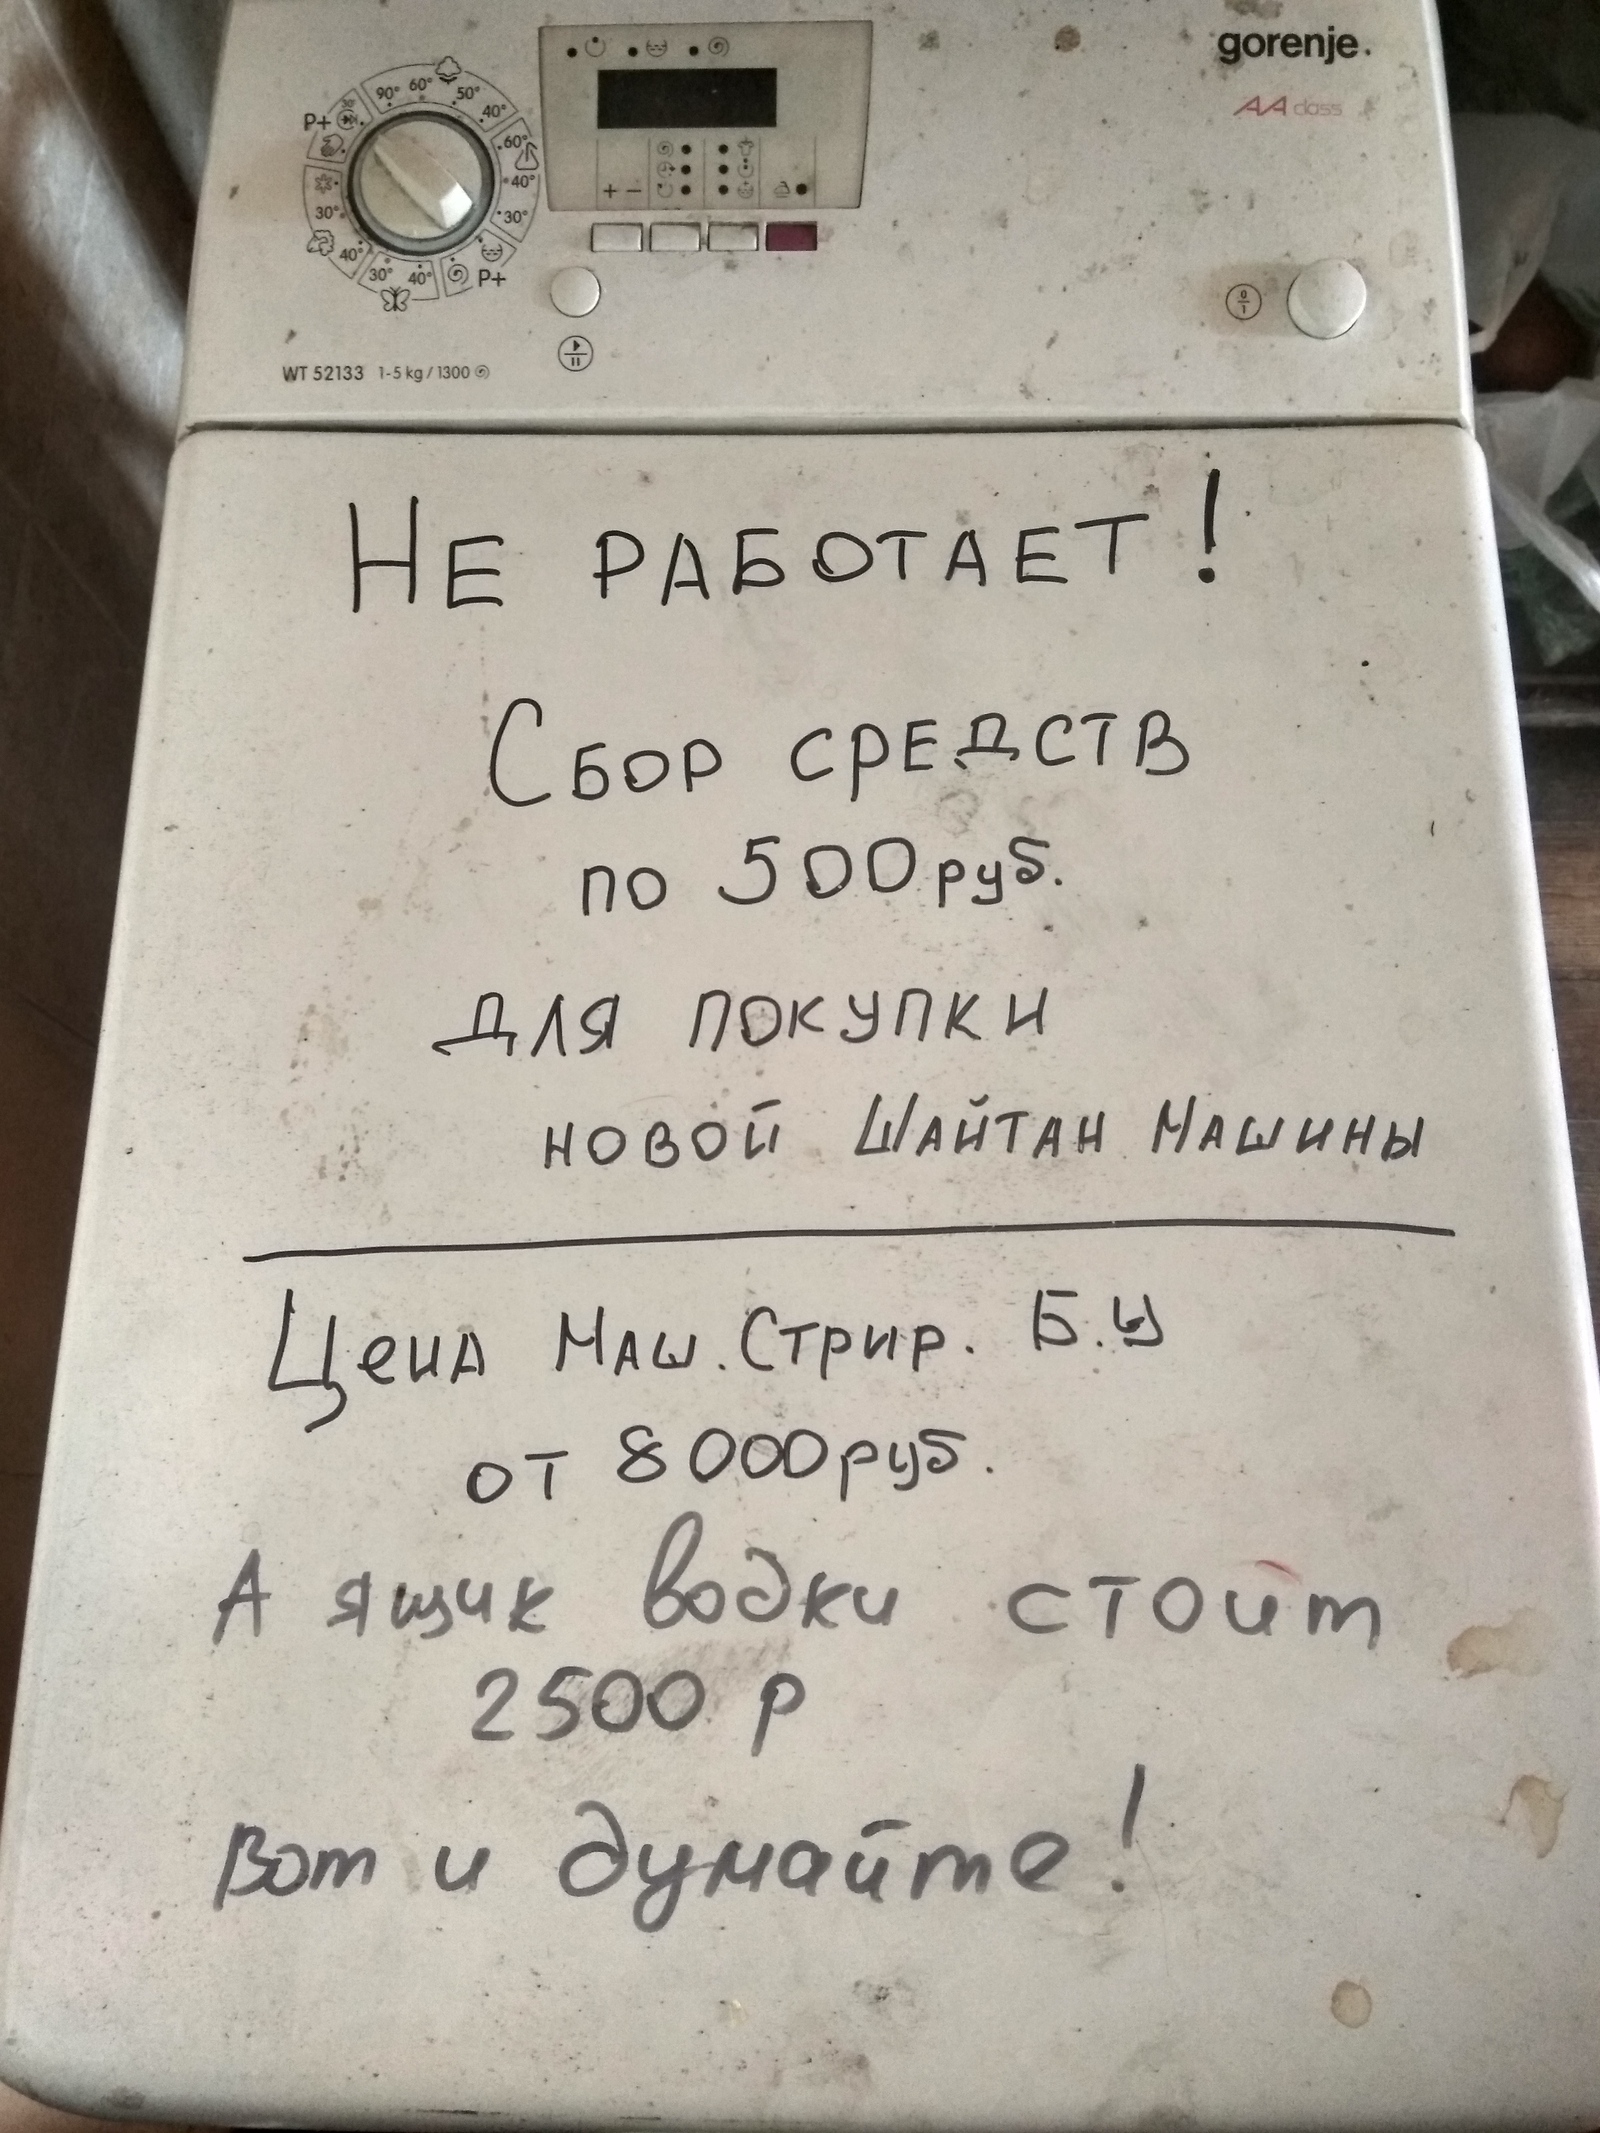 gorenje.
AA class
90° 60° 50° 40°
60° 40° 30°
P+
40° 30°
40° 30°
P+ 30°
+ −
0
1
WT 52133 1-5 kg / 1300
НЕ РАБОТАЕТ!
СБОР СРЕДСТВ
ПО 500 руб.
ДЛЯ ПОКУПКИ
НОВОЙ ШАЙТАН МАШИНЫ
Цена Маш. Стрир. Б.У
от 8000 руб.
А ящик водки стоит
2500 р
Вот и думайте!